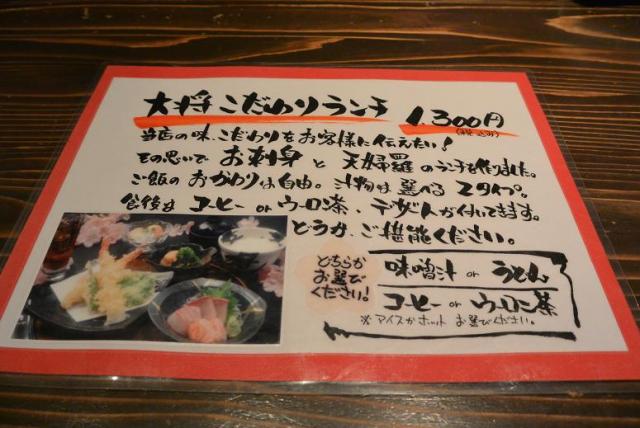 大将こだわりランチ 1,300円
(税込み)
当店の味、こだわりをお客様に伝えたい!
その思いで お刺身 と 天婦羅 のランチを作りました。
ご飯の おかわりは自由。汁物は選べる 2タイプ。
食後は コーヒー or ウーロン茶、デザートが付いてきます。
どうか、ご堪能ください。
どちらか
お選び
ください!
味噌汁 or うどん
コーヒー or ウーロン茶
※アイスかホット お選びください。